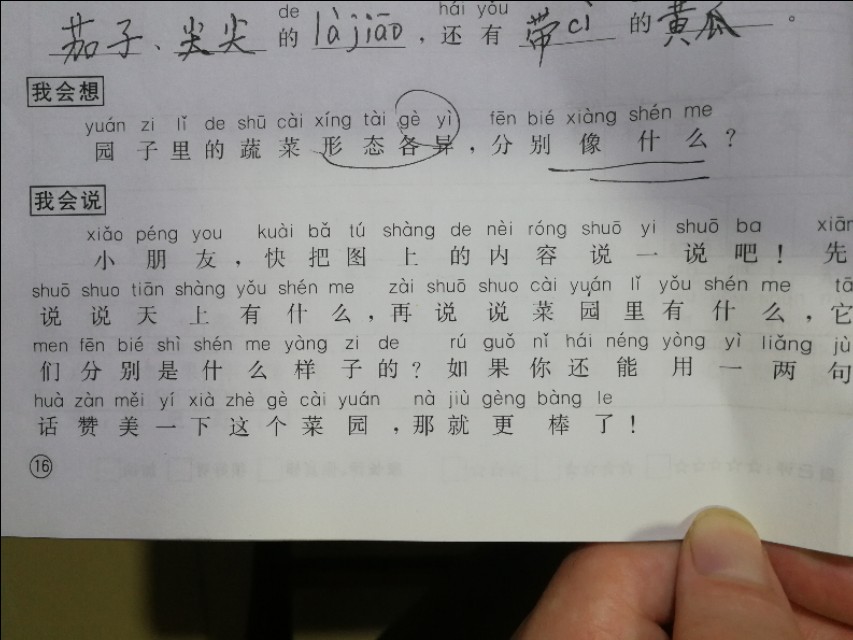 de hái yǒu
茄子、尖尖的làjiāo,还有带cì的黄瓜。
我会想
yuán zi lǐ de shū cài xíng tài gè yì fēn bié xiàng shén me
园子里的蔬菜形态各异,分别像什么?
我会说
xiǎo péng you kuài bǎ tú shàng de nèi róng shuō yi shuō ba xiān
小朋友,快把图上的内容说一说吧!先
shuō shuo tiān shàng yǒu shén me zài shuō shuo cài yuán lǐ yǒu shén me tā
说说天上有什么,再说说菜园里有什么,它
men fēn bié shì shén me yàng zi de rú guǒ nǐ hái néng yòng yì liǎng jù
们分别是什么样子的?如果你还能用一两句
huà zàn měi yí xià zhè gè cài yuán nà jiù gèng bàng le
话赞美一下这个菜园,那就更棒了!
16